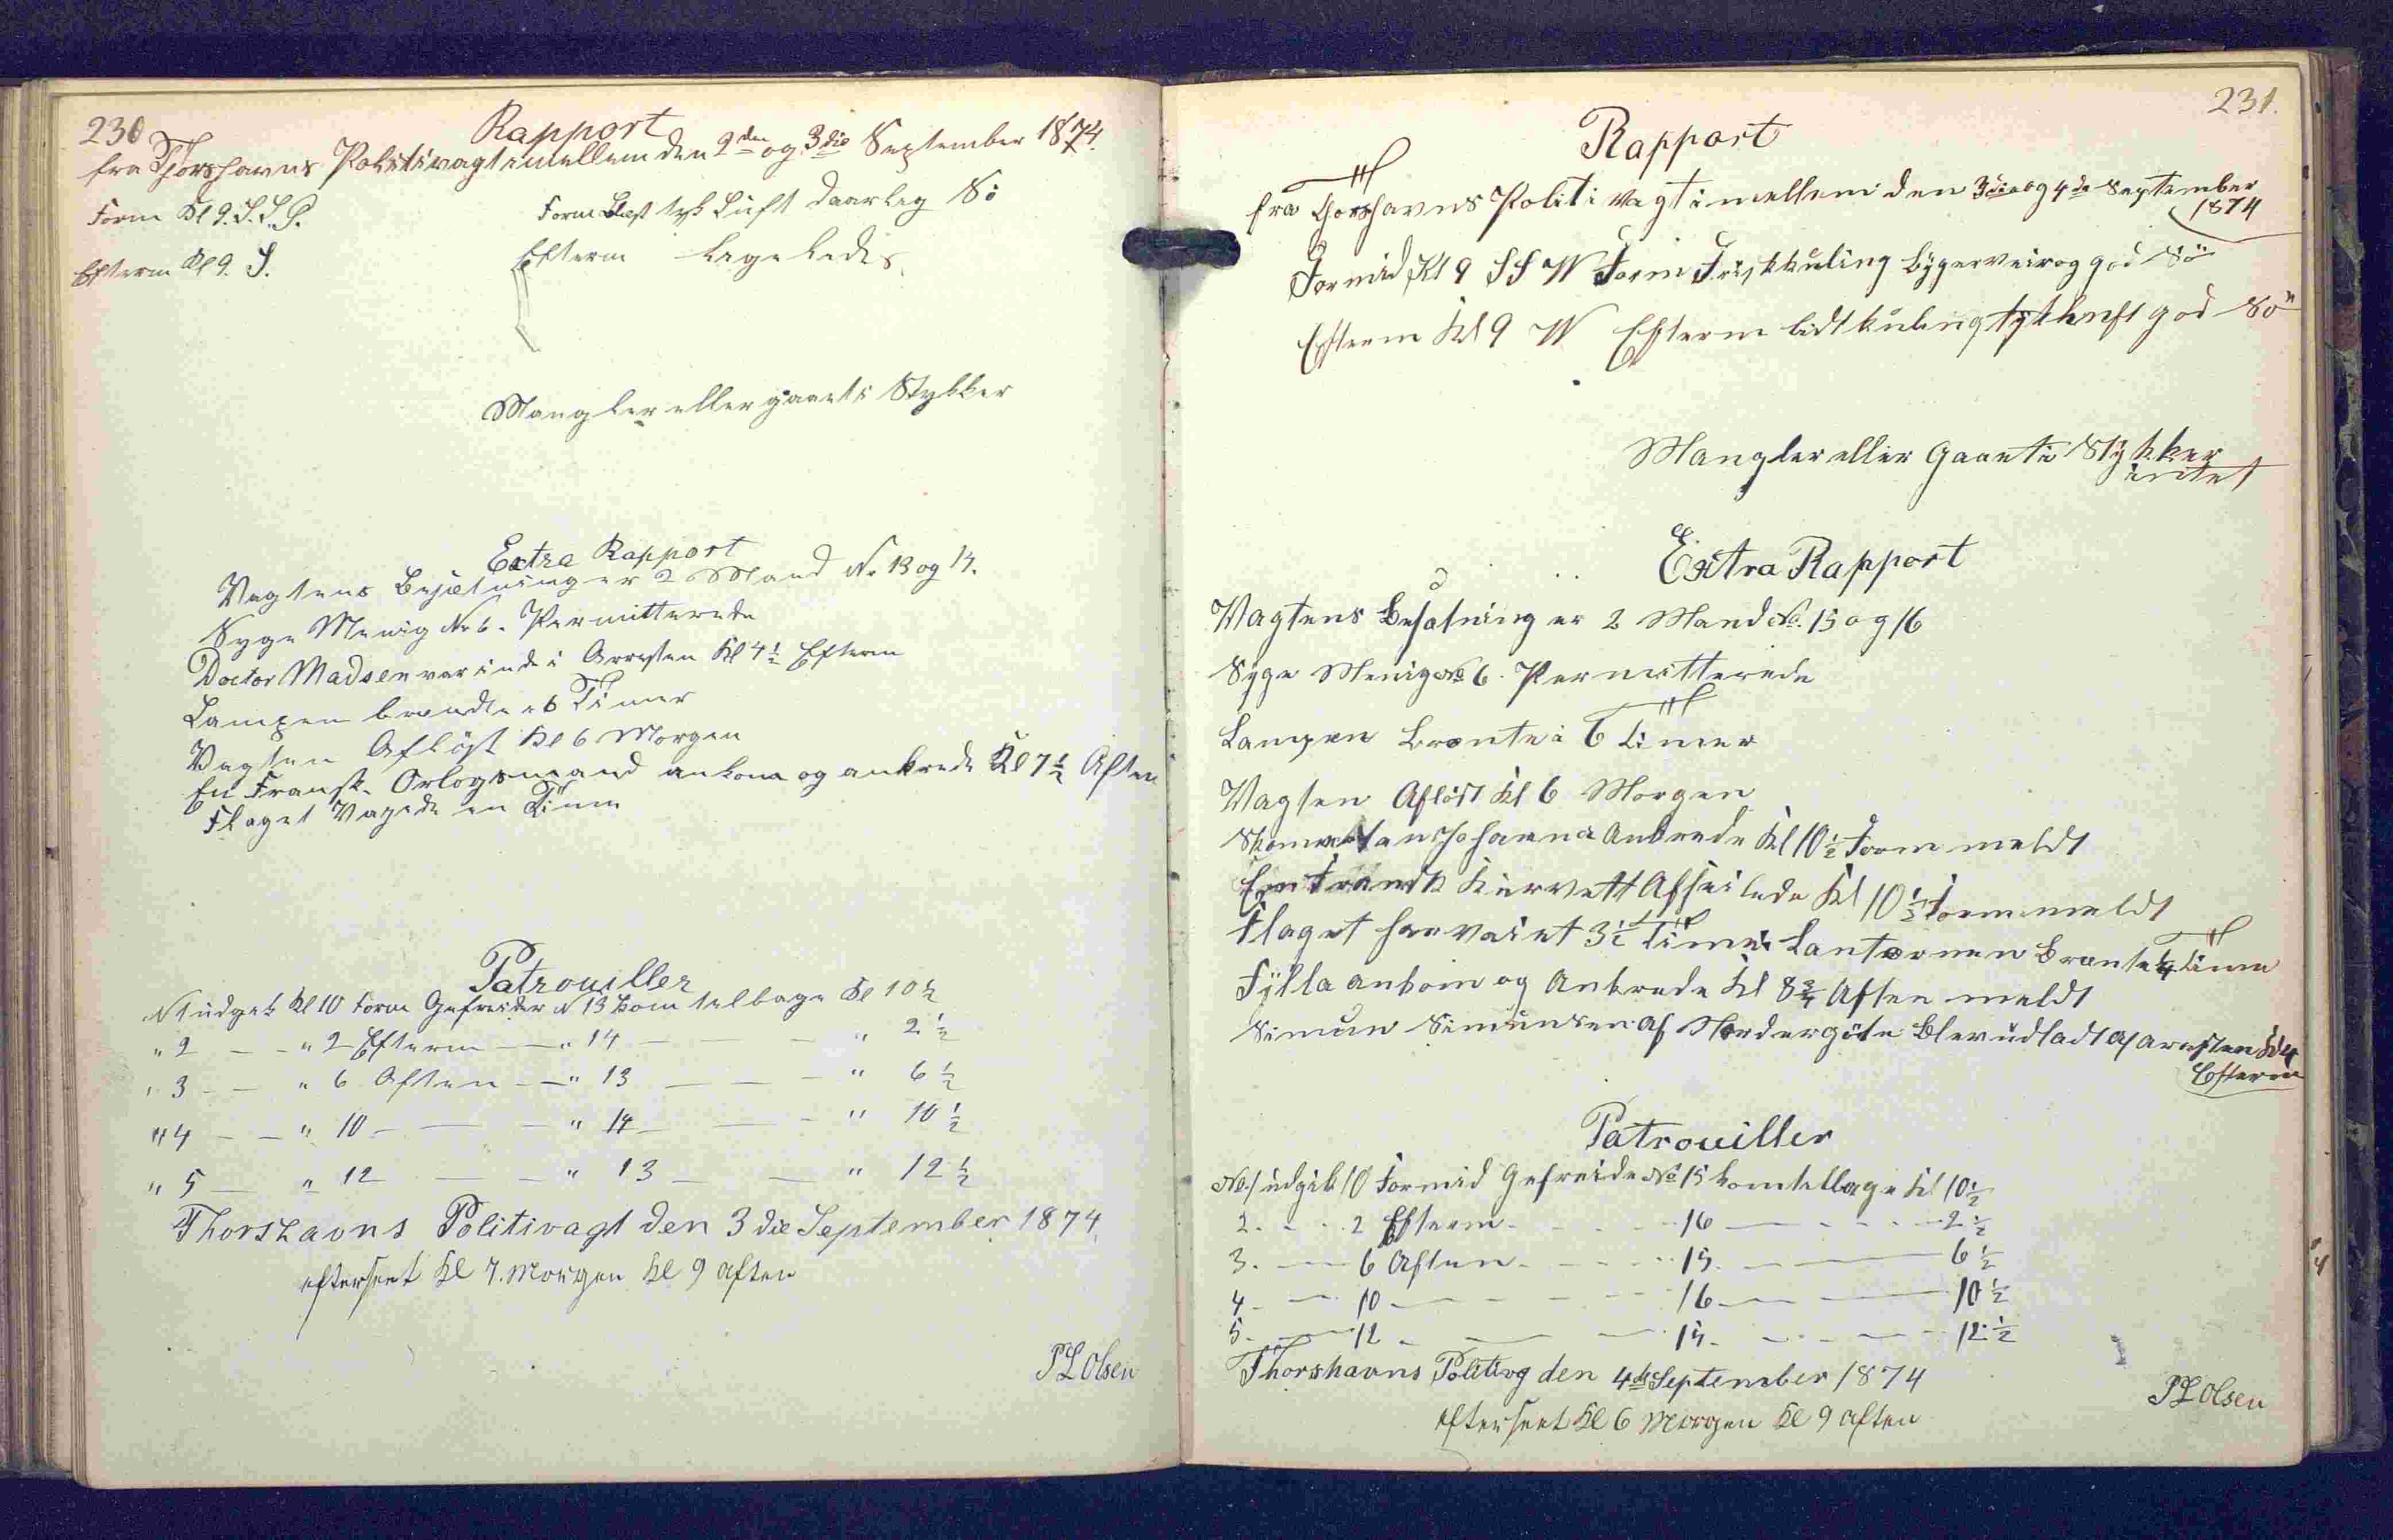 230
Rapport
fra Thorshavns Politivagt imellem den 2den og 3die September 1874.
Form Kl 9. S.S.O. Form Blæst tyk Luft daarlig Sö
Efterm Kl 9. S. Efterm ligeledes
Mangler eller gaaet i Stykker
Extra Rapport
Vagtens Besætning er 2 Mand No 13 og 14.
Syge Menig No 6. Permitterede
Doctor Madsen var inde i Arresten Kl 4½ Efterm
Lampen brændte i 6 Timer
Vagten Aflöst Kl 6 Morgen
En Fransk Orlogsmand ankom og ankrede Kl 7½ Aften
Flaget Vajede en Time
Patrouiller
N 1 udgik Kl 10 Form Gefreider N 13 kom tilbage Kl 10½
" 2 — — " 2 Efterm — " 14 — — " 2½
" 3 — — " 6 Aften — — " 13 — — " 6½
" 4 — — " 10 — — — " 14 — — " 10½
" 5 — " 12 — — " 13 — — " 12½
Thorshavns Politivagt den 3die September 1874,
efterseet Kl 7. Morgen Kl 9 aften
PLOlsen
231.
Rapport
fra Thorshavns Politi Vagt imellem den 3die og 4de September
1874
Formid Kl 9 SSW Form Friskkuling bygerveir og god Sö
Efterm Kl 9 W Efterm lidt kuling tyk luft god Sö
Mangler eller Gaaet i Stykker
intet
Extra Rapport
Vagtens Besætning er 2 Mand No. 15 og 16
Syge Menig No 6. Permitterede
Lampen brænte i 6 Timer
Vagten Aflöst Kl 6 Morgen
Johanna Ankrede Kl 10½ Form meldt
En Fransk Kurvett Afseilede Kl 10½ Form meldt
Flaget har vaiet 3½ Time Lanternen brænte ¼ Time
Fylla ankom og Ankrede Kl 8¾ Aften meldt
Simun Simunsen af Nordergöte blev udladt af aresten Kl 4
Efterm
Patrouiller
No. 1 udgik 10 Formid Gefreide No 15 kom tilbage Kl 10½
2. - - - 2 Efterm - - - - 16 — - - - 2½
3. — 6 Aften - - - - 15 — — 6½
4 - — 10 — - - - 16 — — 10½
5. — 12 - — — 15 - - - — 12½
Thorshavns Politivg den 4de September 1874
efterseet Kl 6 Morgen Kl 9 aften
PLOlsen